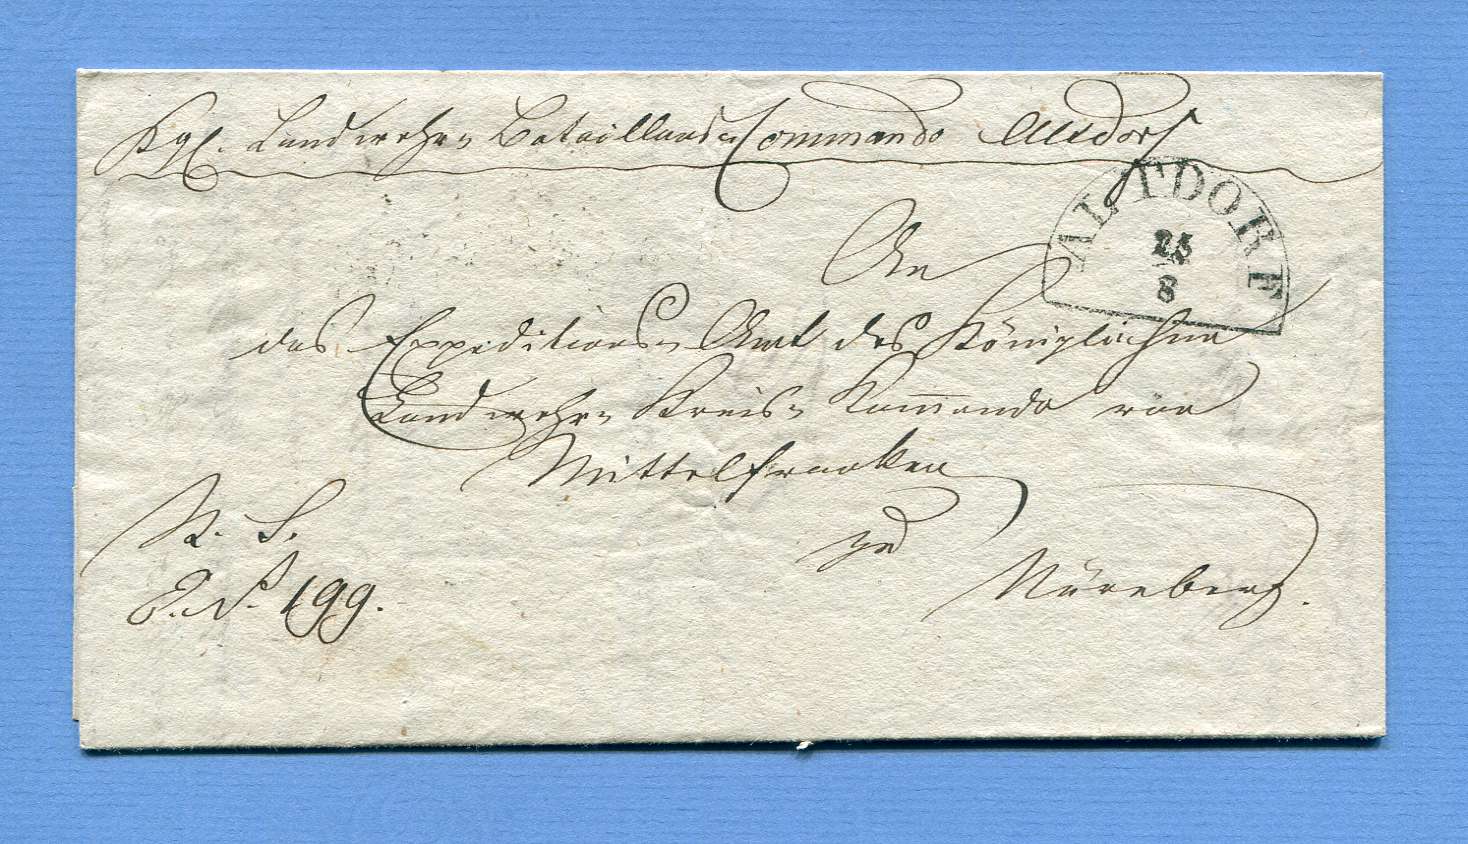 Kgl. Landwehr= Bataillons=Commando Altdorf
ALTDORF
25
8
An
das Expeditions= Amt des Königlichen
Landwehr= Kreis= Kommando von
Mittelfranken
zu
Nürnberg.
R. S.
E. N. 199.